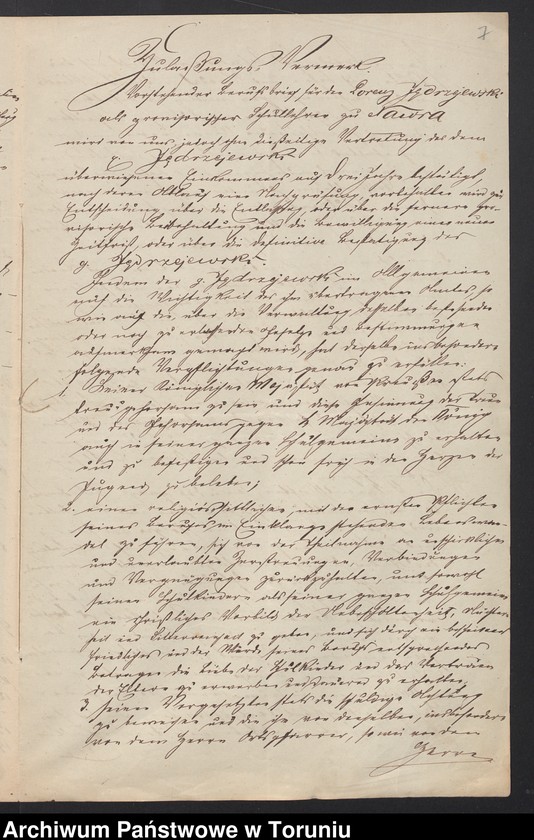 7
Zulassungs Vermerk.
Vorstehender Berufsbrief für den Lorenz Jędrzejewski
als provisorischer Schullehrer zu Nawra
wird von uns, jedoch ohne diesseitige Vertretung des dem
p. Jędrzejewski
überwiesenen Einkommens auf drei Jahre bestätigt,
nach deren Ablauf eine Nachprüfung, vorbehalten wird zur
Entscheidung über die Entlassung, oder über die fernere pro-
visorische Beibehaltung und die Bewilligung eines neuen
Zeitfrist, oder über die definitive Bestätigung des
p. Jędrzejewski.
Indem der p. Jędrzejewski im Allgemeinen
auf die Wichtigkeit des ihm übertragenen Amtes, so
wie auf die über die Verwaltung desselben bestehenden
oder noch zu erlassenden Gesetze und Bestimmungen
aufmerksam gemacht wird, hat derselbe insbesondere
folgende Verpflichtungen genau zu erfüllen:
1. Seiner Königlichen Majestät von Preußen stets
treu gehorsam zu sein und diese Gesinnung der Treue
und des Gehorsams gegen S. Majestät den König
auch in seiner ganzen Schulgemeine zu erhalten
und zu befestigen und schon früh in den Herzen der
Jugend zu beleben;
2. einen religiös sittlichen, mit den ernsten Pflichten
seines Berufs im Einklange stehenden Lebenswan-
del zu führen, sich von der Theilnahme an unschicklichen
und unerlaubten Zerstreuungen, Verbindungen
und Vergnügungen zurückzuhalten, und sowohl
seinen Schulkindern als seiner ganzen Schulgemeine
ein christliches Vorbild der Unbescholtenheit, Nüchtern-
heit und zu geben, und sich durch ein bescheidenes
friedliches und der Würde seines Berufs entsprechendes
Betragen die Liebe der Schulkinder und das Vertrauen
der Eltern zu erwerben und zu erhalten;
3. seinen Vorgesetzten stets die schuldige Achtung
zu beweisen und die ihm von denselben, insbesondere
von dem Herrn Ortspfarrer, so wie von dem
Herrn
Archiwum Państwowe w Toruniu